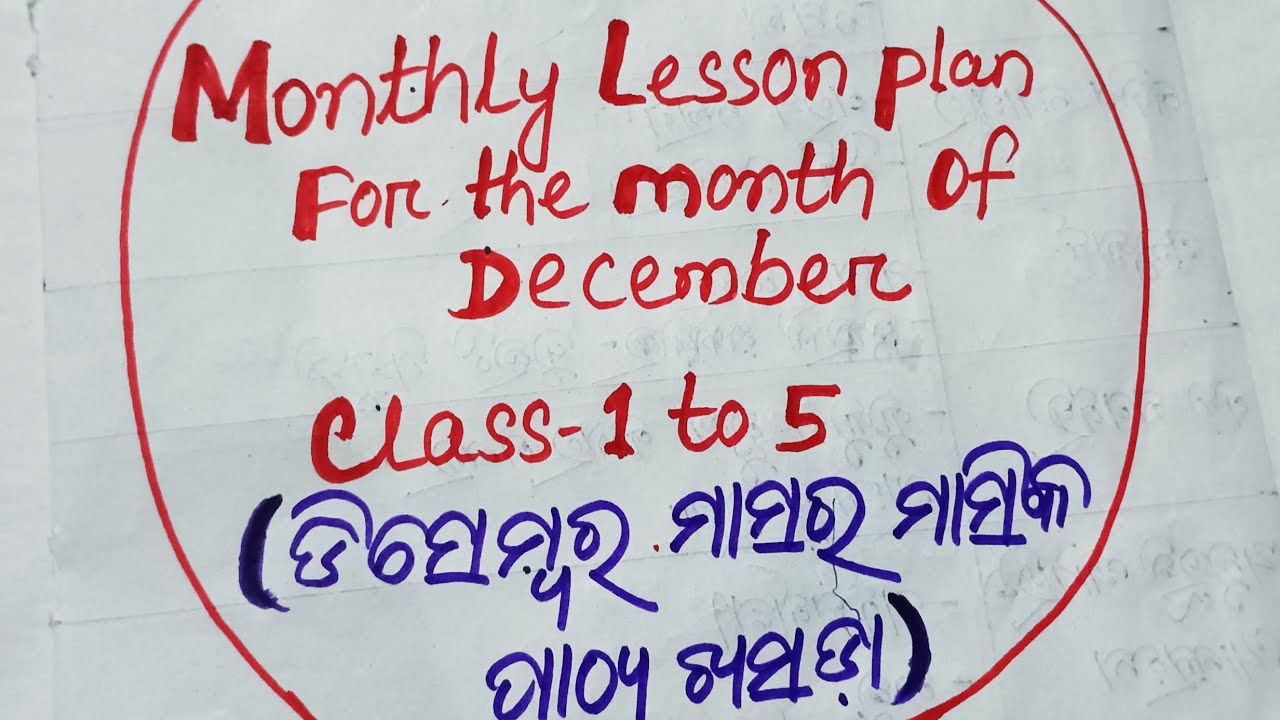 Monthly Lesson plan
For the month of
December
Class-1 to 5
(ଡିସେମ୍ବର ମାସର ମାସିକ
ପାଠ୍ୟ ଖସଡ଼ା)